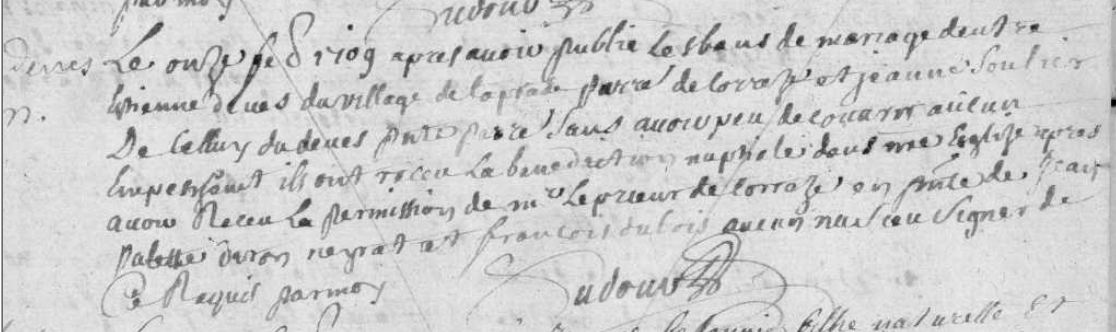 par moy
Sudour
Le onze feb 1709 apres avoir publie Les bans de mariage dentre
Estienne deves du village de laprade parre de Corraze et jeanne Soulier
De Celluy du deves pnte parre Sans avoir peu decouvrir aucun
Empeschant ils ont receu La benediction nuptiale dans nre Eglize apres
avoir Receu La permission de mr Le prieur de Corraze en pnce de Jean
neyrat et francois dubois aucun na sceu Signer de
Ce Requis par moy
Sudour
filhe naturelle Et